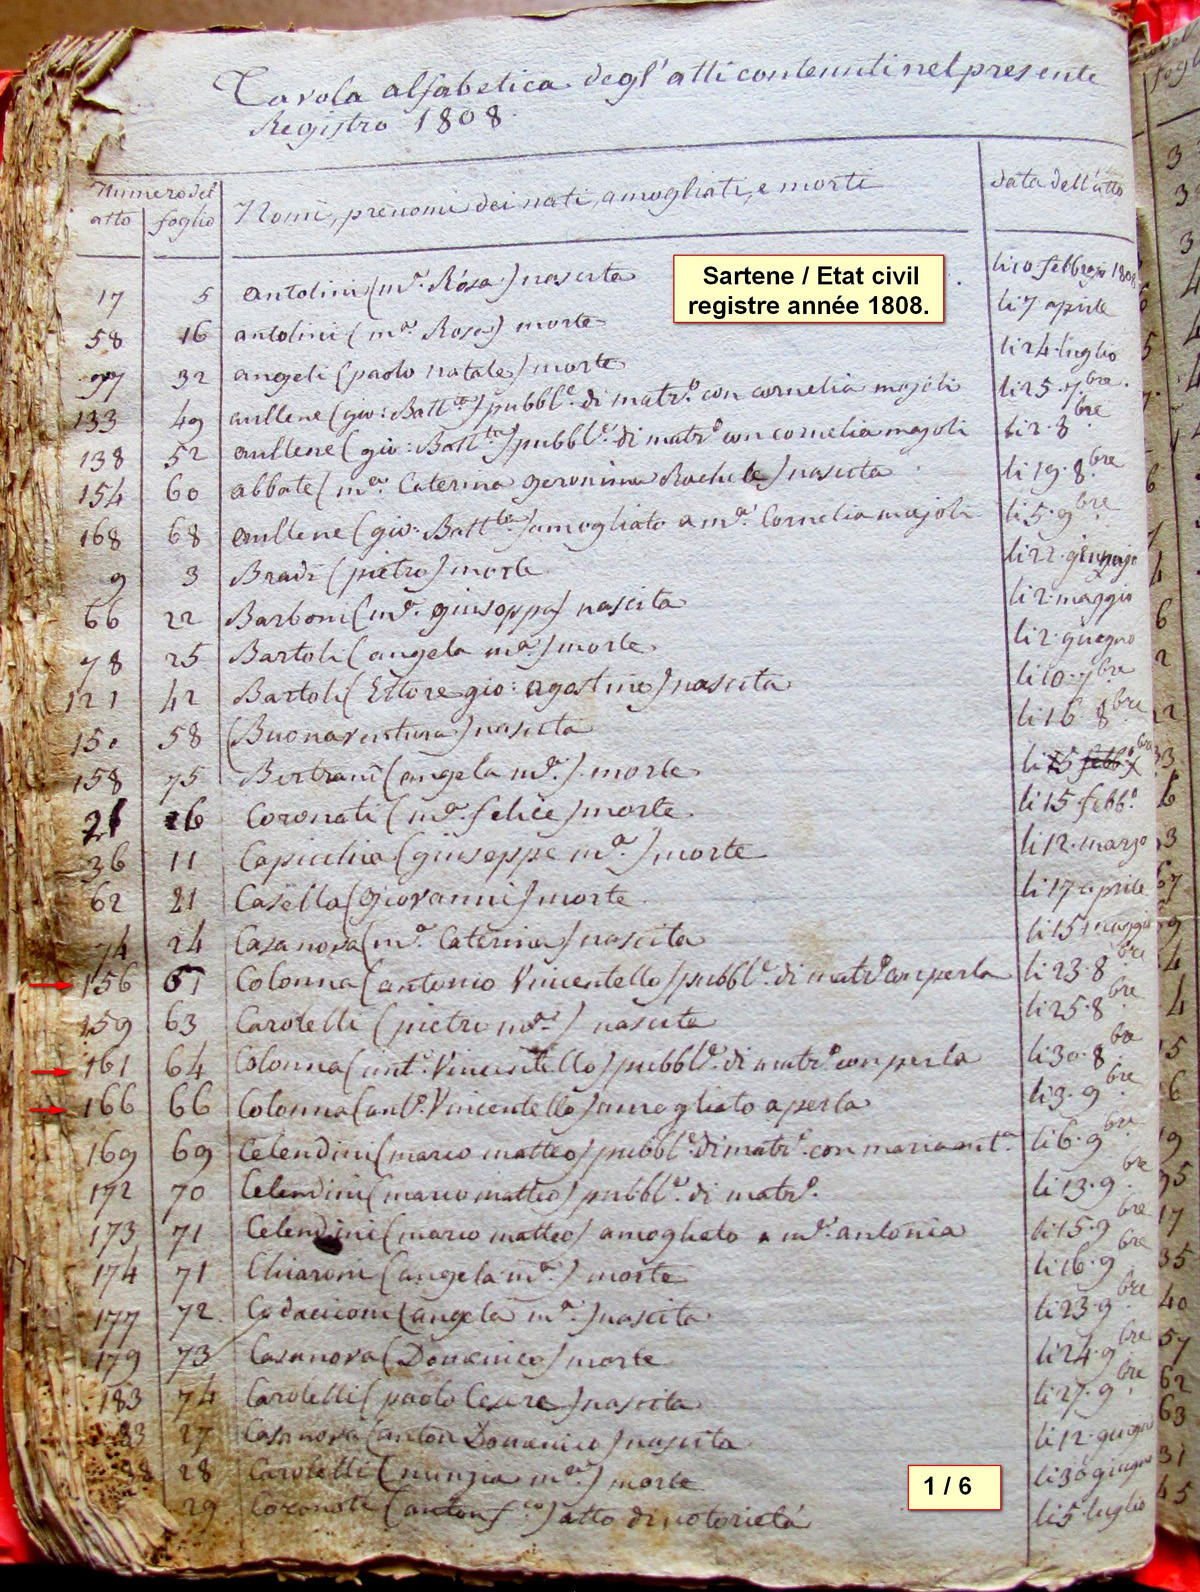 Tavola alfabetica degl' atti contenuti nel presente
Registro 1808.
Numero del
atto foglio
Nomi, prenomi dei nati, amogliati, e morti
data dell'atto
Sartene / Etat civil
registre année 1808.
17 5 antolini (m.ª Rosa) nascita li 10 febbrajo 1808
58 16 antolini (m.ª Rosa) morte li 7 aprile
97 32 angeli (paolo natale) morte li 24 luglio
133 49 aullene (gio: Batt.ta) pubbl.e di matr.o con cornelia majoli li 25. 7bre.
138 52 aullene (gio: Batt.ta) pubbl.e di matr.o con cornelia majoli li 2. 8bre
154 60 abbate (m.ª Caterina geronima Rachele) nascita li 19. 8bre
168 68 aullene (gio: Batt.ta) amogliato a m.ª Cornelia majoli li 5. 9bre
9 3 Bradi (pietro) morte li 22. gennajo
66 22 Barboni (m.ª giuseppa) nascita li 2. maggio
78 25 Bartoli (angela m.ª) morte li 2. giugno
121 42 Bartoli (Ettore gio: agostino) nascita li 10. 7bre
150 58 (Buonaventura) nascita li 16. 8bre
158 75 Bertrani (angela m.ª) morte li 15
21 26 Coronati (m.ª felice) morte li 15 febb.o
36 11 Capicchia (giuseppe m.ª) morte li 12. marzo
62 21 Casella (Giovanni) morte li 17 aprile
74 24 Casanova (m.ª Caterina) nascita li 15 maggio
156 61 Colonna (antonio Vincentello) pubbl.e di matr.o con perla li 23. 8bre
159 63 Carolelli (pietro m.ª) nascita li 25. 8bre
161 64 Colonna (ant.o Vincentello) pubbl.e di matr.o con perla li 30. 8bre
166 66 Colonna (ant.o Vincentello) amogliato a perla li 3. 9bre
169 69 Celendini (marco matteo) pubbl.e di matr.o con maria ant.ª li 6. 9bre
172 70 Celendini (marco matteo) pubbl.e di matr.o li 13. 9bre
173 71 Celendini (marco matteo) amogliato a m.ª antonia li 15. 9bre
174 71 Chiaroni (angela m.ª) morte li 16. 9bre
177 72 Codaccioni (angela m.ª) nascita li 23. 9bre
179 73 Casanova (Domenico) morte li 24. 9bre
183 74 Carolelli (paolo Cesare) nascita li 27. 9bre
83 27 Casanova (anton Domenico) nascita li 12. giugno
28 Carolelli (nunzia m.ª) morte li 30 giugno
29 Coronati (anton f.co) atto di notorietà li 5. luglio
1 / 6